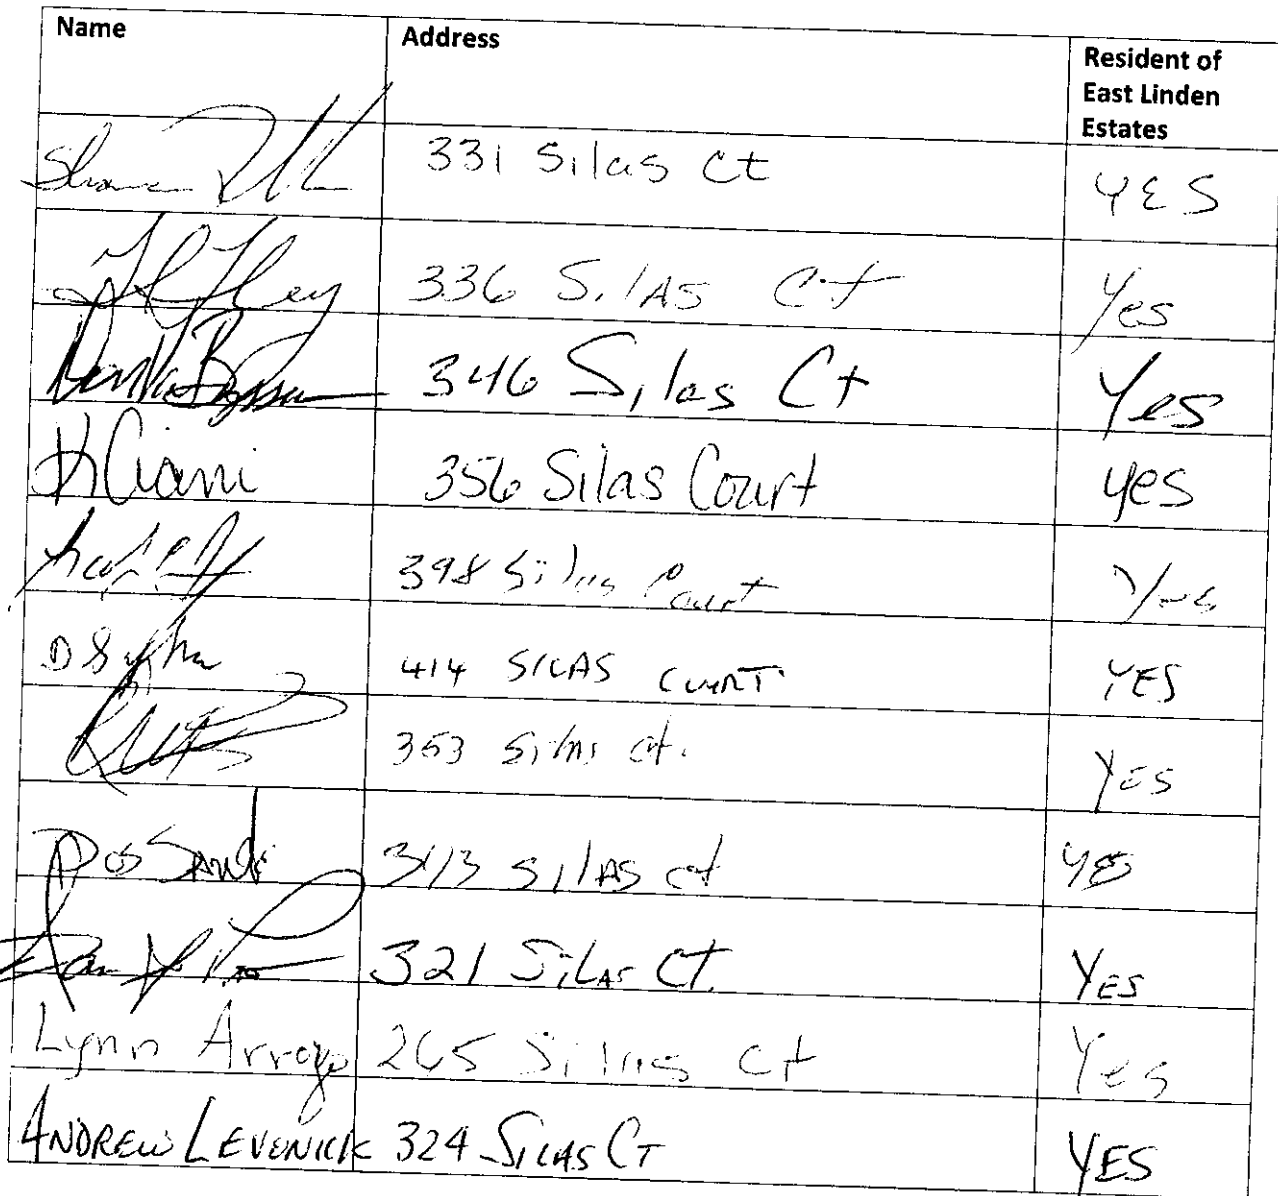 Name Address Resident of
East Linden
Estates
331 Silas Ct YES
336 SilAS Ct Yes
346 Silas Ct Yes
K Ciani 356 Silas Court yes
398 Silas Court Yes
414 SILAS COURT YES
353 Silas ct. YES
Dos Santos 343 SilAS ct YES
321 SiLAS CT. YES
Lynn Arroyo 265 Silas Ct Yes
ANDREW LEVONICK 324 SILAS CT YES